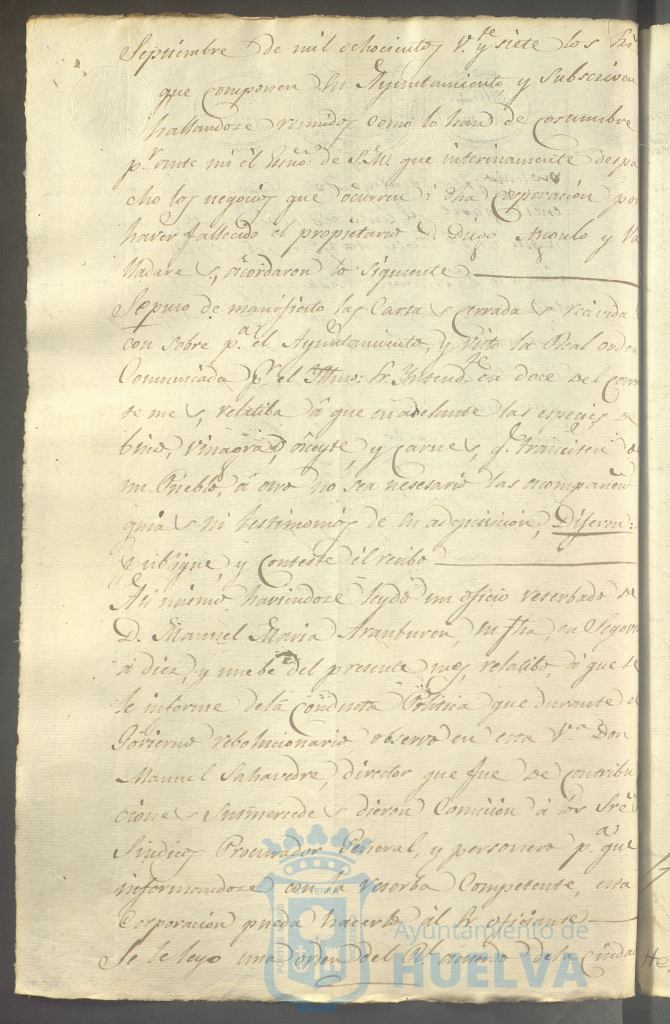 Septiembre de mil ochocientos v.te y siete los
que componen su Ayuntamiento y subscriven
hallandose reunidos como lo han de costumbre
p.r ante mi el Essno de S.M. que interinamente despa
cho los negocios que ocurren á dha Corporacion por
haver fallecido el propietario D. Diego Angulo y Va
lladares, acordaron lo siguiente
Se puso de manifiesto las Cartas cerradas recividas
con sobre p.a el Ayuntamiento, y visto la Real orden
Comunicada p.r el Yltmo: Sr Yntend.te en doce del corrn
te mes, relatiba á que en adelante las especies de
bino, vinagre, aceyte, y carnes, q.e transiten de
un Pueblo, á otro no sea nesesario las acompañen
guias ni testimonios de su adquisicion, Dijeron:
Publiquese, y conteste el recibo
Asi mismo haviendose leydo un oficio reserbado de
D. Manuel Maria Aramburen, su fha, en
á diez, y nuebe del presente mes, relatibo, á que se
le informe dela conducta Politica que durante el
Govierno rebolucionario, observó en esta V.a Don
Manuel Sahavedre, director que fue de Contribu
ciones sumercedes dieron Comicion á los Sres
Sindicos Procurador General, y personero p.a que
informandose con la reserba Competente, esta
Corporacion pueda hacerlo ál Sr oficiante
Se le leyo una orden del Rl acuerdo dela Ciudad
Ayuntamiento de
HUELVA